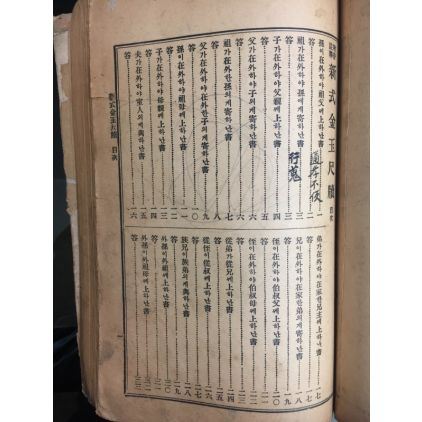 新式金玉尺牘 目次
孫이在外하야祖父에上하난書……一
答……二
祖가在外하야孫에게寄하난書……三
答……三
子가在外하야父親에上하난書……四
答……五
父가在外하야子의게寄하난書……六
答……六
祖가在外한孫의게寄하난書……七
答……八
父가在外한子의게寄하난書……九
答
孫이在外하야祖母에上하난書
答
子가在外하야母親에上하난書……一四
答……一五
夫가在外하야室人의게與하난書……一六
弟가在外하야在家한兄主에上하난書……一七
答……一七
兄이在外하야在家한弟의게寄하난書……一八
答……一九
侄이在外하야伯叔父에上하난書……二〇
答……二一
侄이在外하야伯叔母에上하난書……二二
答……二三
從弟가從兄에上하난書……二四
答……二五
從侄이從叔에上하난書……二六
答……二七
族兄이族弟의게與하난書……二八
答……二九
外孫이外祖에上하난書……三〇
答……三一
外孫이外祖母에上하난書……三二
答……三三
新式金玉尺牘 目次